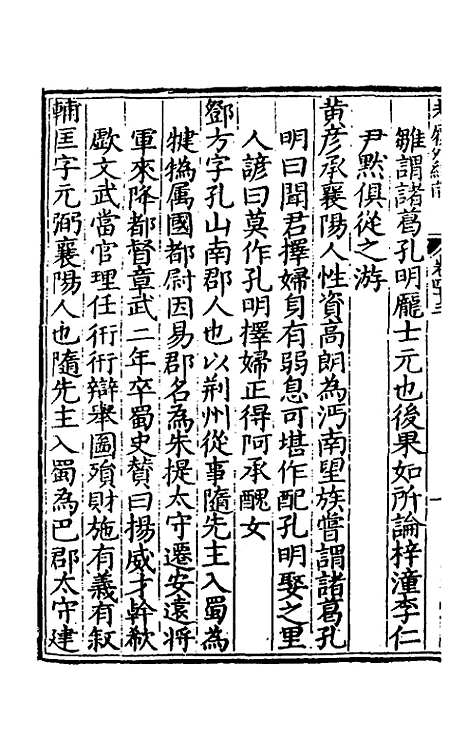 雛謂諸葛孔明龐士元也後果如所論梓潼李仁
尹默俱從之游
黄彦承襄陽人性資高朗為沔南望族嘗謂諸葛孔
明曰聞君擇婦身有弱息可堪作配孔明娶之里
人諺曰莫作孔明擇婦正得阿承醜女
鄧方字孔山南郡人也以荆州從事隨先主入蜀為
犍為属國都尉因易郡名為朱提太守遷安遠將
軍來降都督章武二年卒蜀史贊曰揚威才幹欷
歔文武當官理任衎衎辯舉圖殖財施有義有叙
輔匡字元弼襄陽人也隨先主入蜀為巴郡太守建